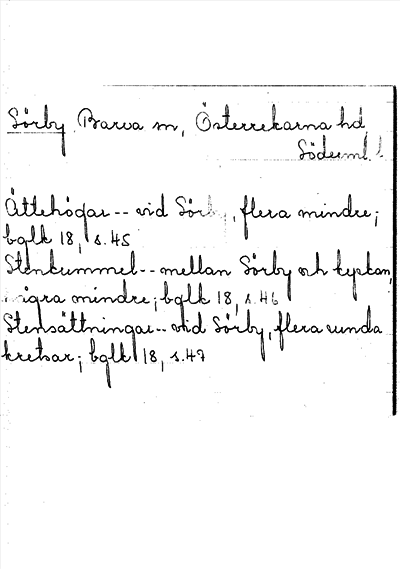 Sörby Barva sn, Österrekarna hd,
Söderml. l.
Ättehögar -- vid Sörby, flera mindre;
bglk 18, s. 45
Stenkummel -- mellan Sörby och kyrkan,
några mindre; bglk 18, s. 46
Stensättningar -- vid Sörby, flera runda
kretsar; bglk 18, s. 47